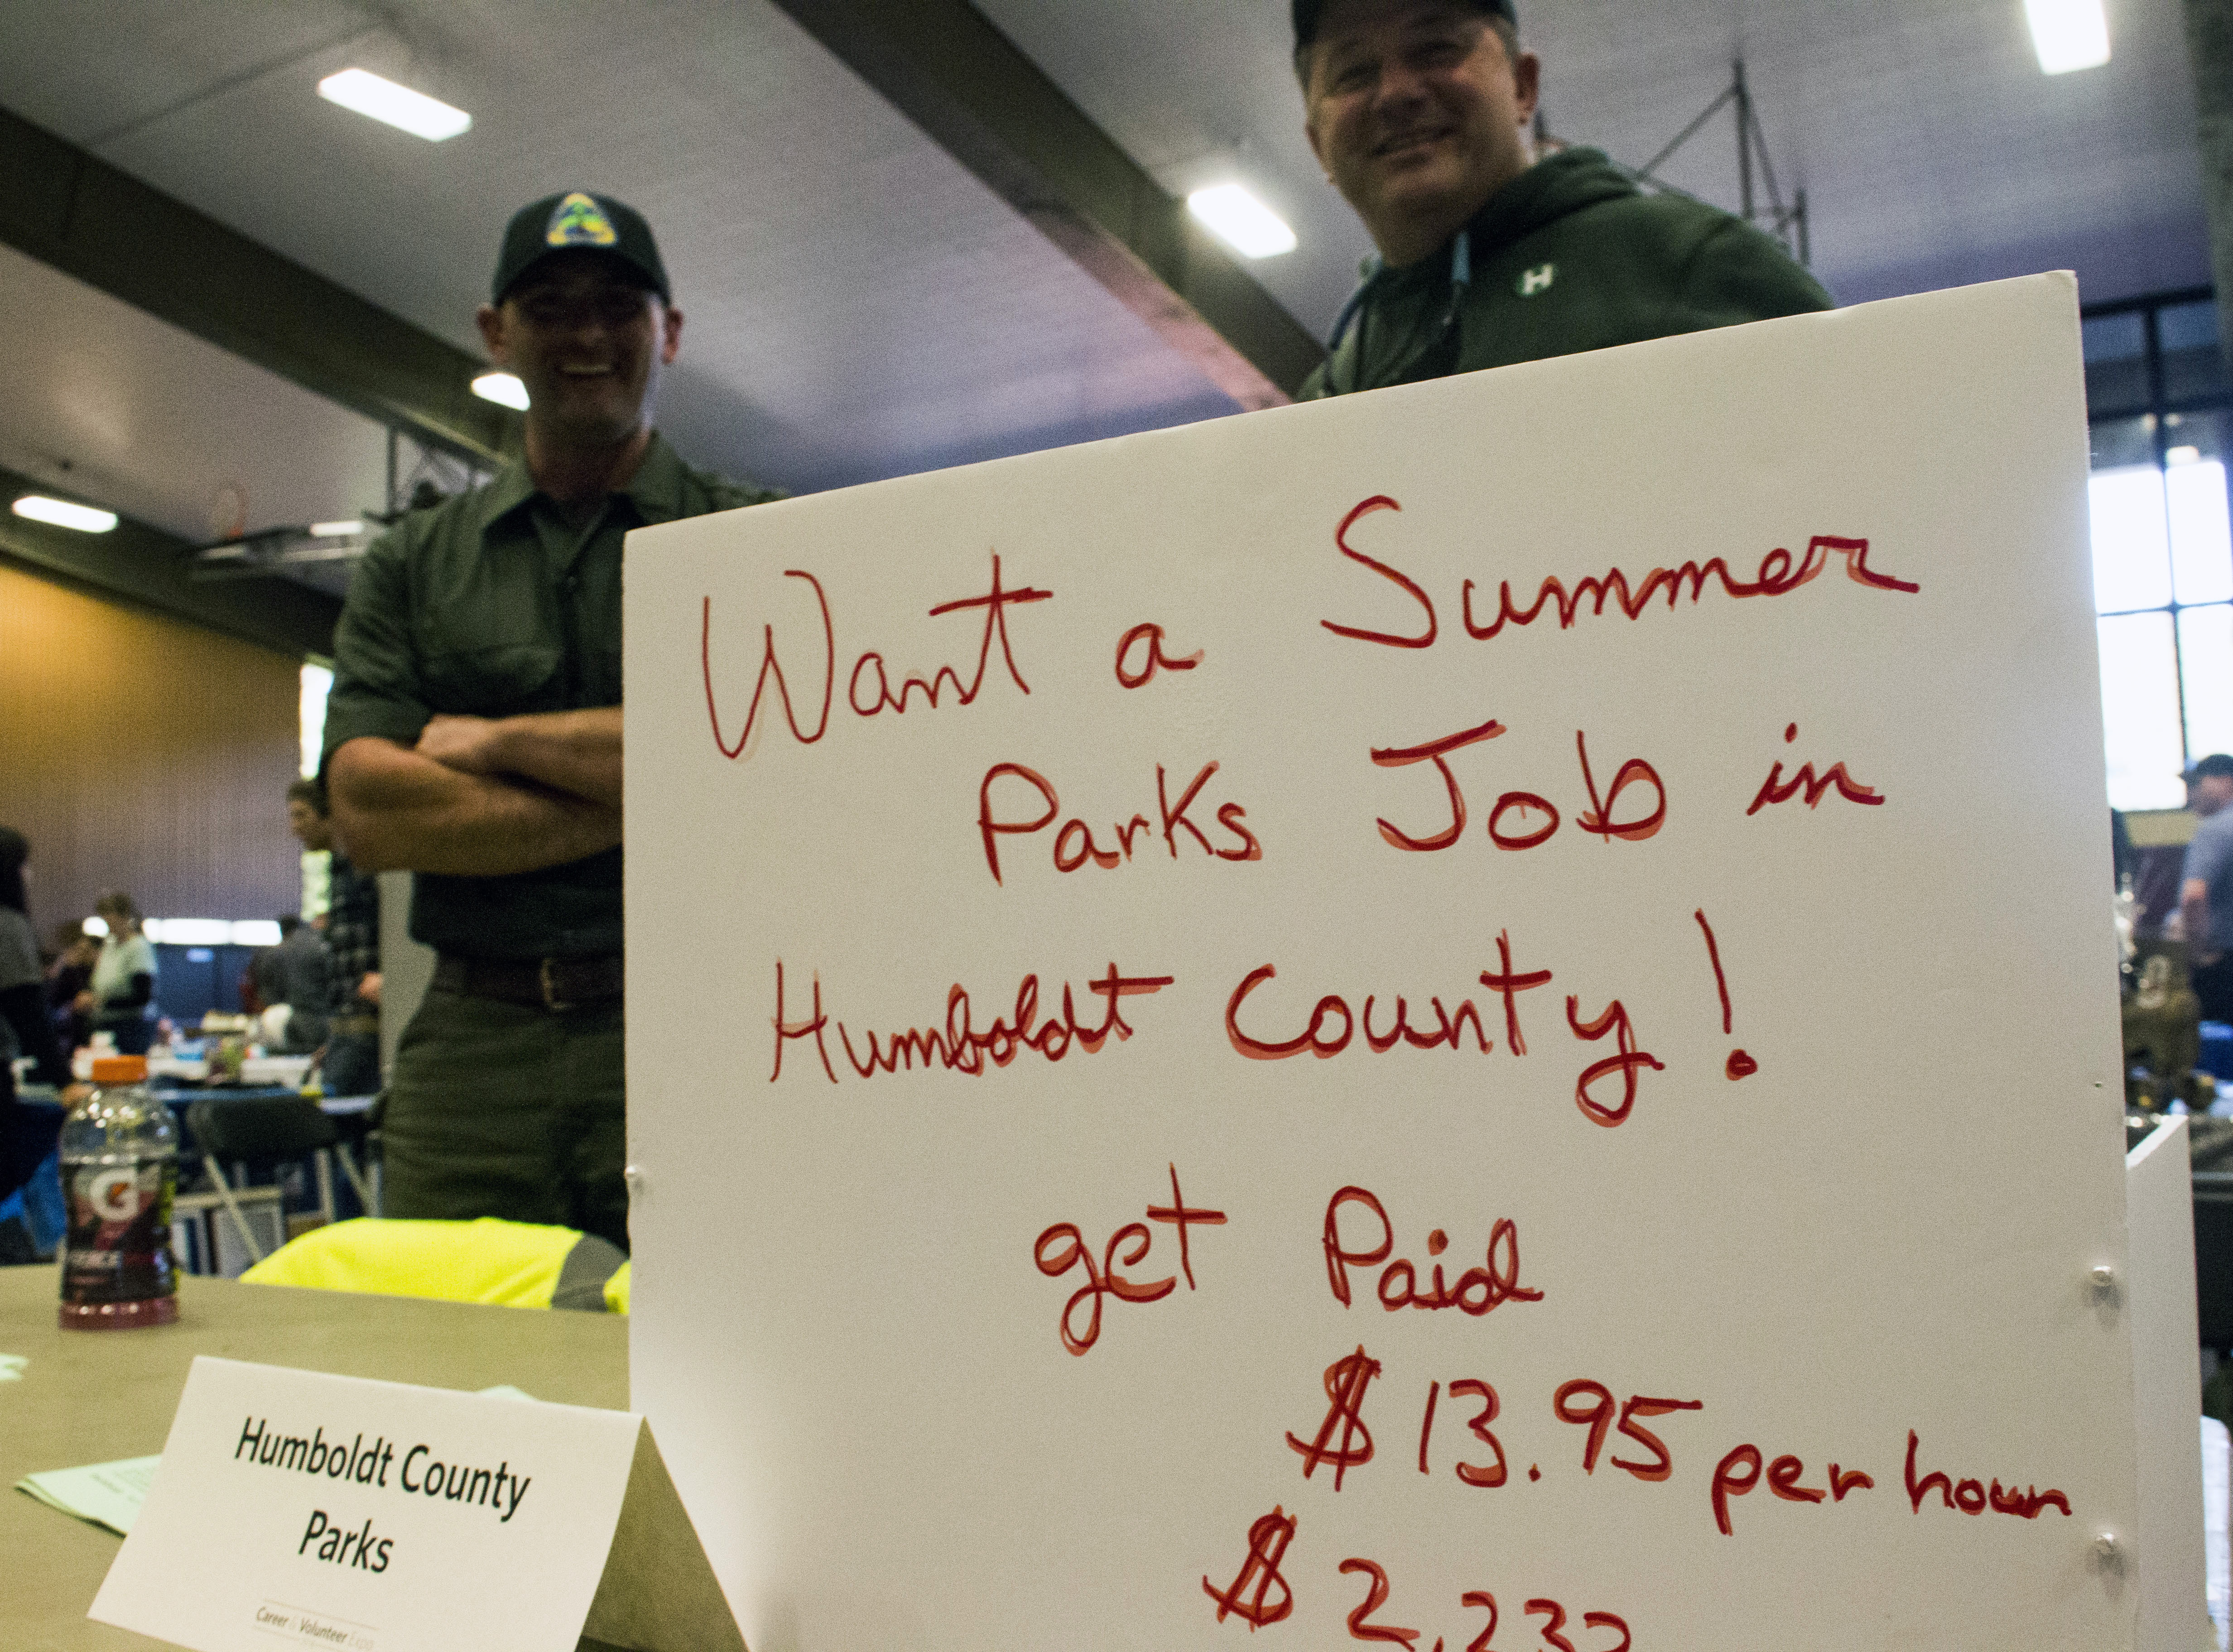 Want a Summer
Parks Job in
Humboldt County!
get Paid
$13.95 per hour
$2,232
Humboldt County
Parks
Career & Volunteer Expo
G
H